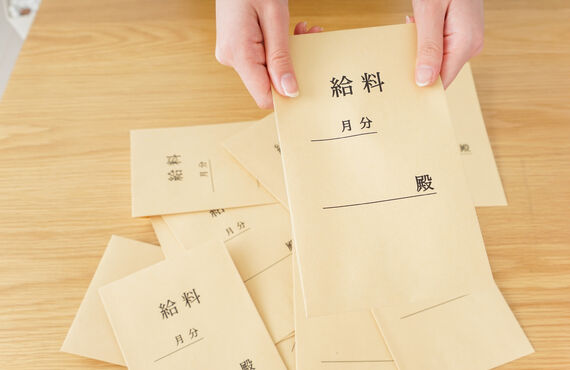 給料
月分
殿
給料
月分
月分
殿
給料
月分
殿